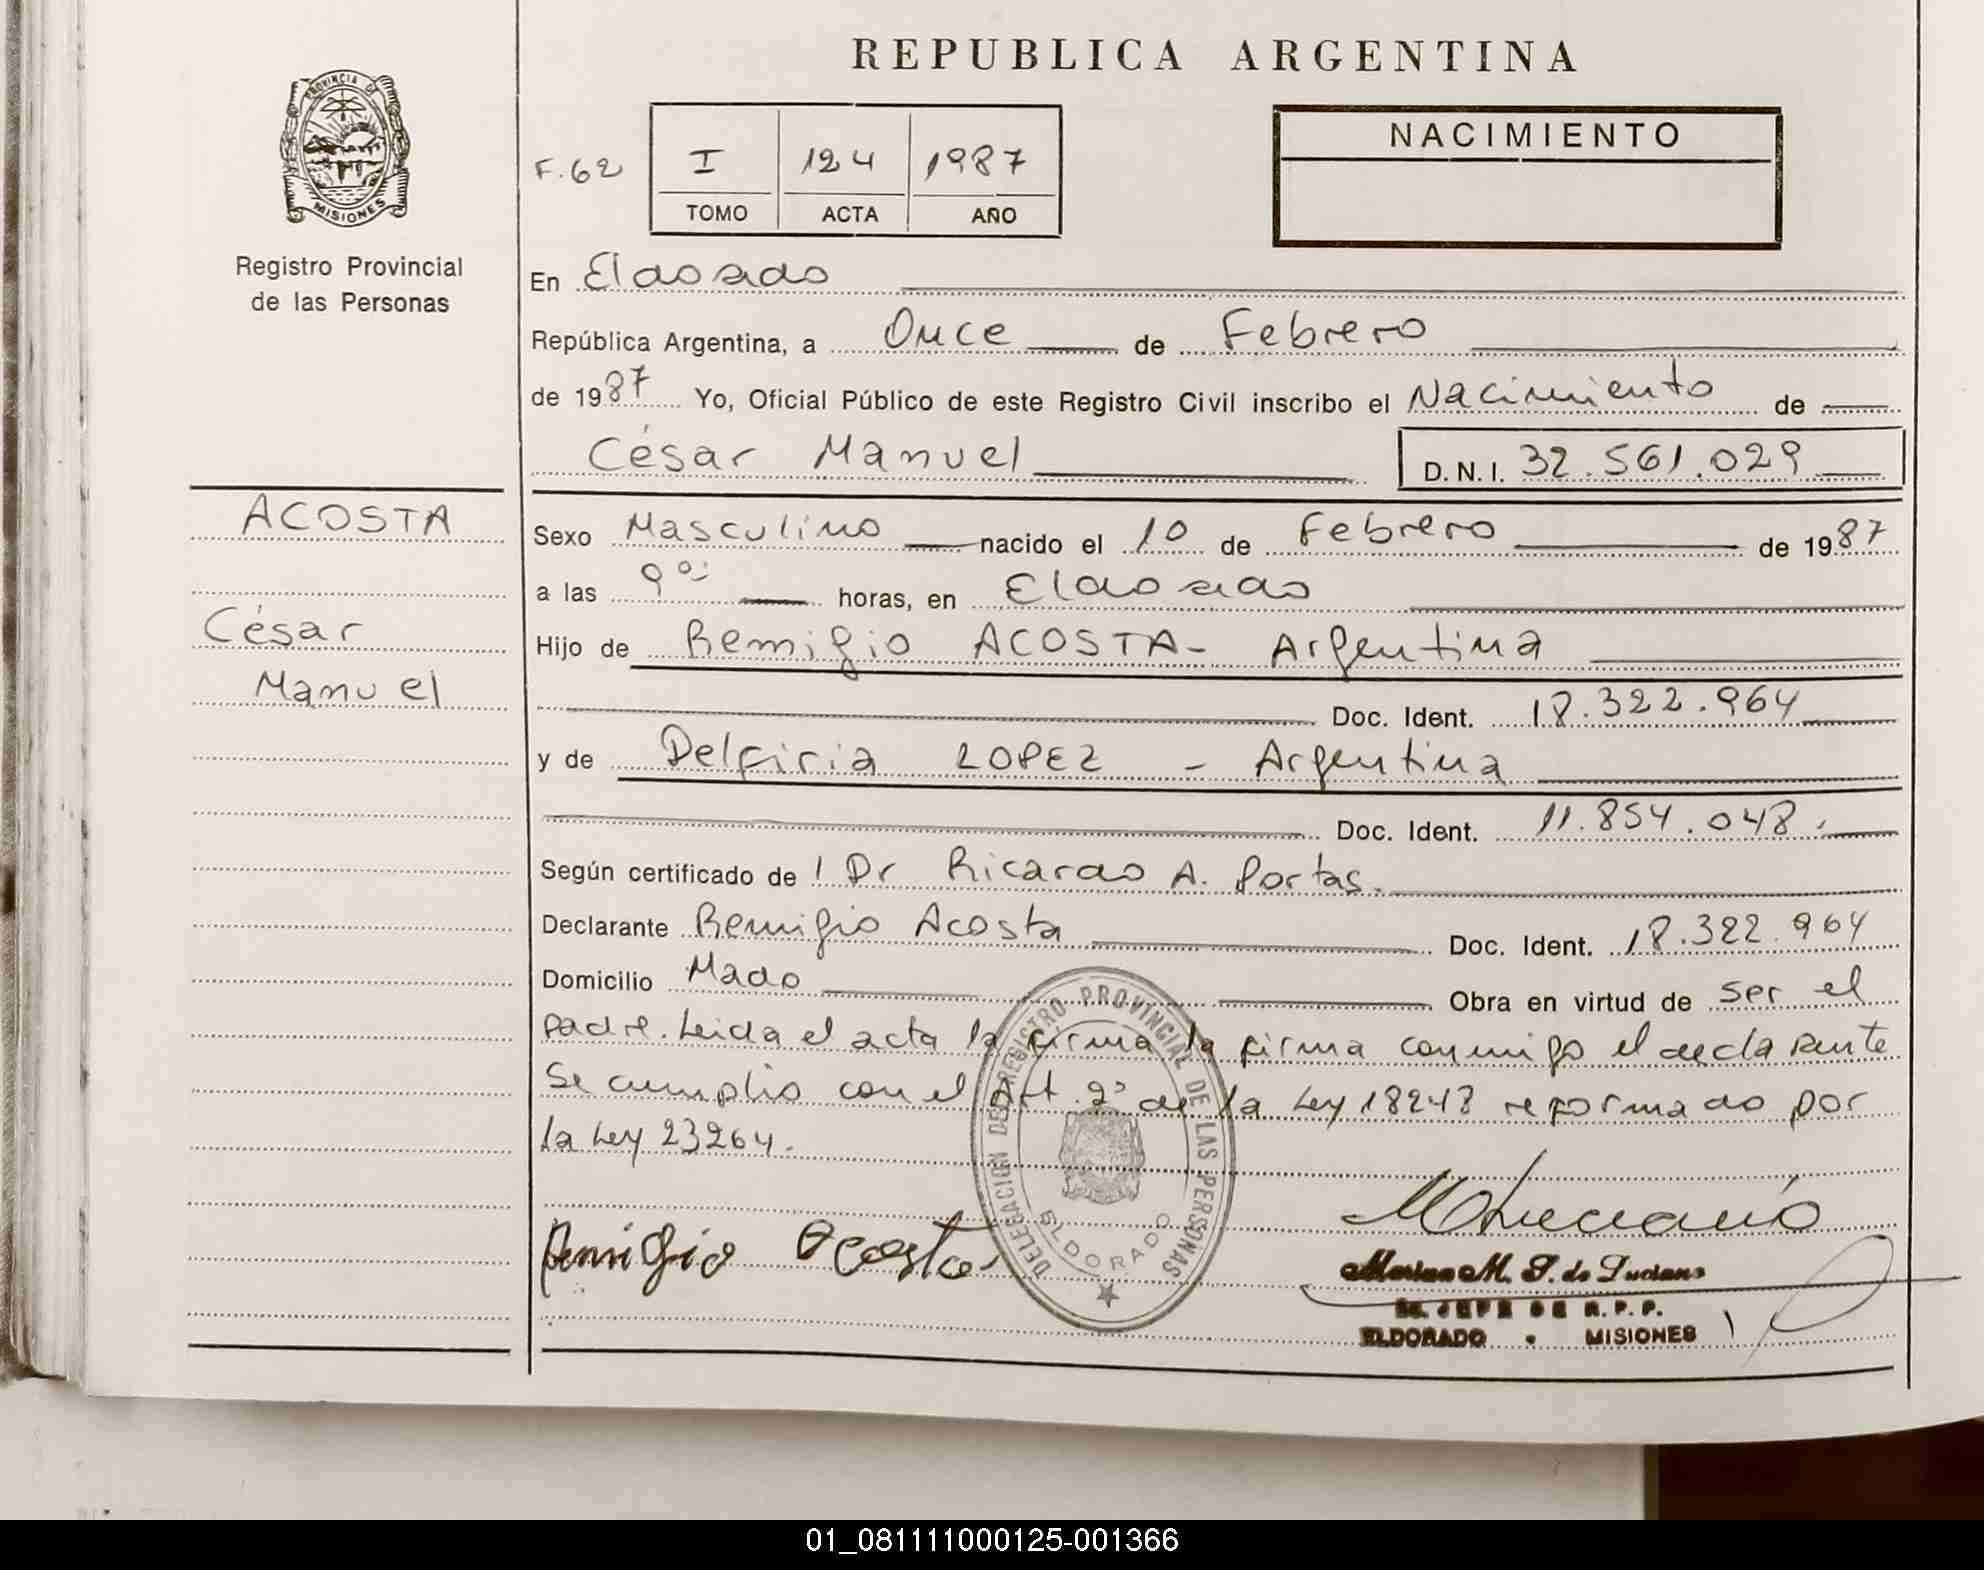 REPUBLICA ARGENTINA
PROVINCIA DE
MISIONES
Registro Provincial
de las Personas
F. 62
I 124 1987
TOMO ACTA AÑO
NACIMIENTO
En Eldorado
República Argentina, a Once de Febrero
de 1987 Yo, Oficial Público de este Registro Civil inscribo el Nacimiento de
César Manuel D.N.I. 32.561.029
ACOSTA
César
Manuel
Sexo Masculino nacido el 10 de Febrero de 1987
a las 9 00 horas, en Eldorado
Hijo de Remigio ACOSTA - Argentina
Doc. Ident. 18.322.964
y de Delfiria LOPEZ - Argentina
Doc. Ident. 11.854.048.
Según certificado de l Dr Ricardo A. Portas.
Declarante Remigio Acosta Doc. Ident. 18.322.964
Domicilio Mado Obra en virtud de ser el
padre. Leida el acta la firma la firma conmigo el declarante
Se cumplio con el Art. 2° de la Ley 18248 reformado por
la Ley 23264.
DELEGACION DEL REGISTRO PROVINCIAL DE LAS PERSONAS
ELDORADO
Remigio Acosta
M. de Luciano
ELDORADO - MISIONES
01_081111000125-001366